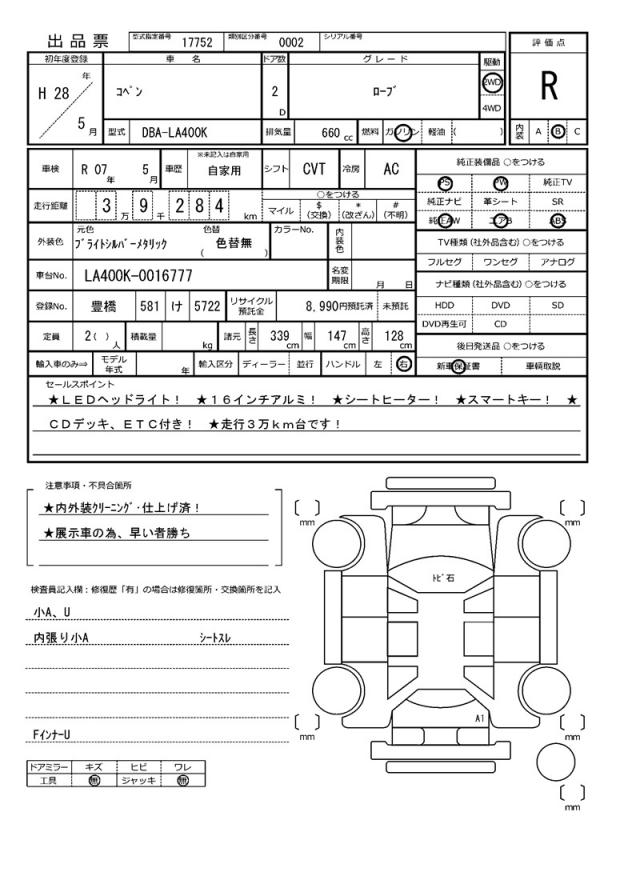 出品票 型式指定番号 17752 類別区分番号 0002 シリアル番号
評価点
R
内装 A B C
初年度登録 車名 ドア数 グレード 駆動
H 28 年 5 月 コペン 2 D ローブ 2WD 4WD
型式 DBA-LA400K 排気量 660 cc 燃料 ガソリン 軽油 ( )
車検 R 07 年 5 月 車歴 ※未記入は自家用 自家用 シフト CVT 冷房 AC
走行距離 3 万 9 千 2 8 4 km ○をつける
マイル $ (交換) * (改ざん) # (不明)
外装色 元色 ブライトシルバーメタリック 色替 色替無 ( ) カラーNo. 内装色
車台No. LA400K-0016777 名変期限 月 日
登録No. 豊橋 581 け 5722 リサイクル預託金 8,990円預託済 未預託
定員 2( ) 人 積載量 kg 諸元 長さ 339 cm 幅 147 cm 高さ 128 cm
輸入車のみ⇒ モデル年式 年 輸入区分 ディーラー 並行 ハンドル 左 右
純正装備品 ○をつける
PS PW 純正TV
純正ナビ 革シート SR
純正AW エアB ABS
TV種類 (社外品含む) ○をつける
フルセグ ワンセグ アナログ
ナビ種類 (社外品含む) ○をつける
HDD DVD SD
DVD再生可 CD
後日発送品 ○をつける
新車保証書 車輌取説
セールスポイント
★LEDヘッドライト! ★16インチアルミ! ★シートヒーター! ★スマートキー! ★
CDデッキ、ETC付き! ★走行3万km台です!
注意事項・不具合箇所
★内外装クリーニング・仕上げ済!
★展示車の為、早い者勝ち
検査員記入欄:修復歴「有」の場合は修復箇所・交換箇所を記入
小A、U
内張り小A シートスレ
FインナーU
ドアミラー キズ ヒビ ワレ
工具 無 ジャッキ 無
mm
mm
トビ石
A1
mm
mm
mm